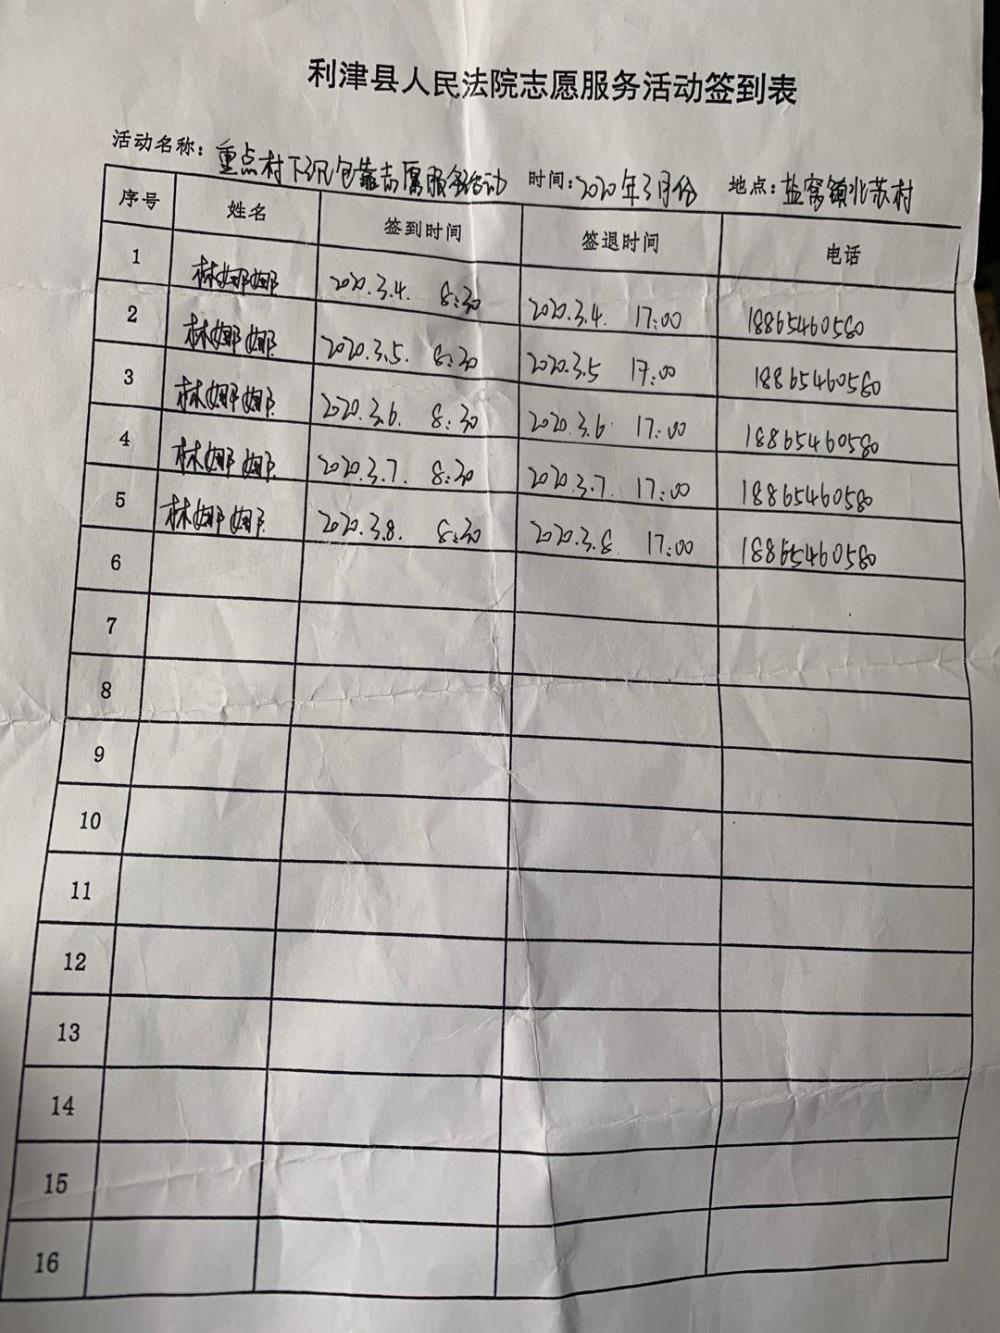 利津县人民法院志愿服务活动签到表
活动名称：重点村下沉包靠志愿服务活动 时间：2020年3月份 地点：盐窝镇北苏村
序号 姓名 签到时间 签退时间 电话
1 林娜娜 2020.3.4. 8:30 2020.3.4. 17:00 18865460580
2 林娜娜 2020.3.5. 8:30 2020.3.5 17:00 18865460580
3 林娜娜 2020.3.6. 8:30 2020.3.6 17:00 18865460580
4 林娜娜 2020.3.7. 8:30 2020.3.7. 17:00 18865460580
5 林娜娜 2020.3.8. 8:30 2020.3.8. 17:00 18865460580
6
7
8
9
10
11
12
13
14
15
16